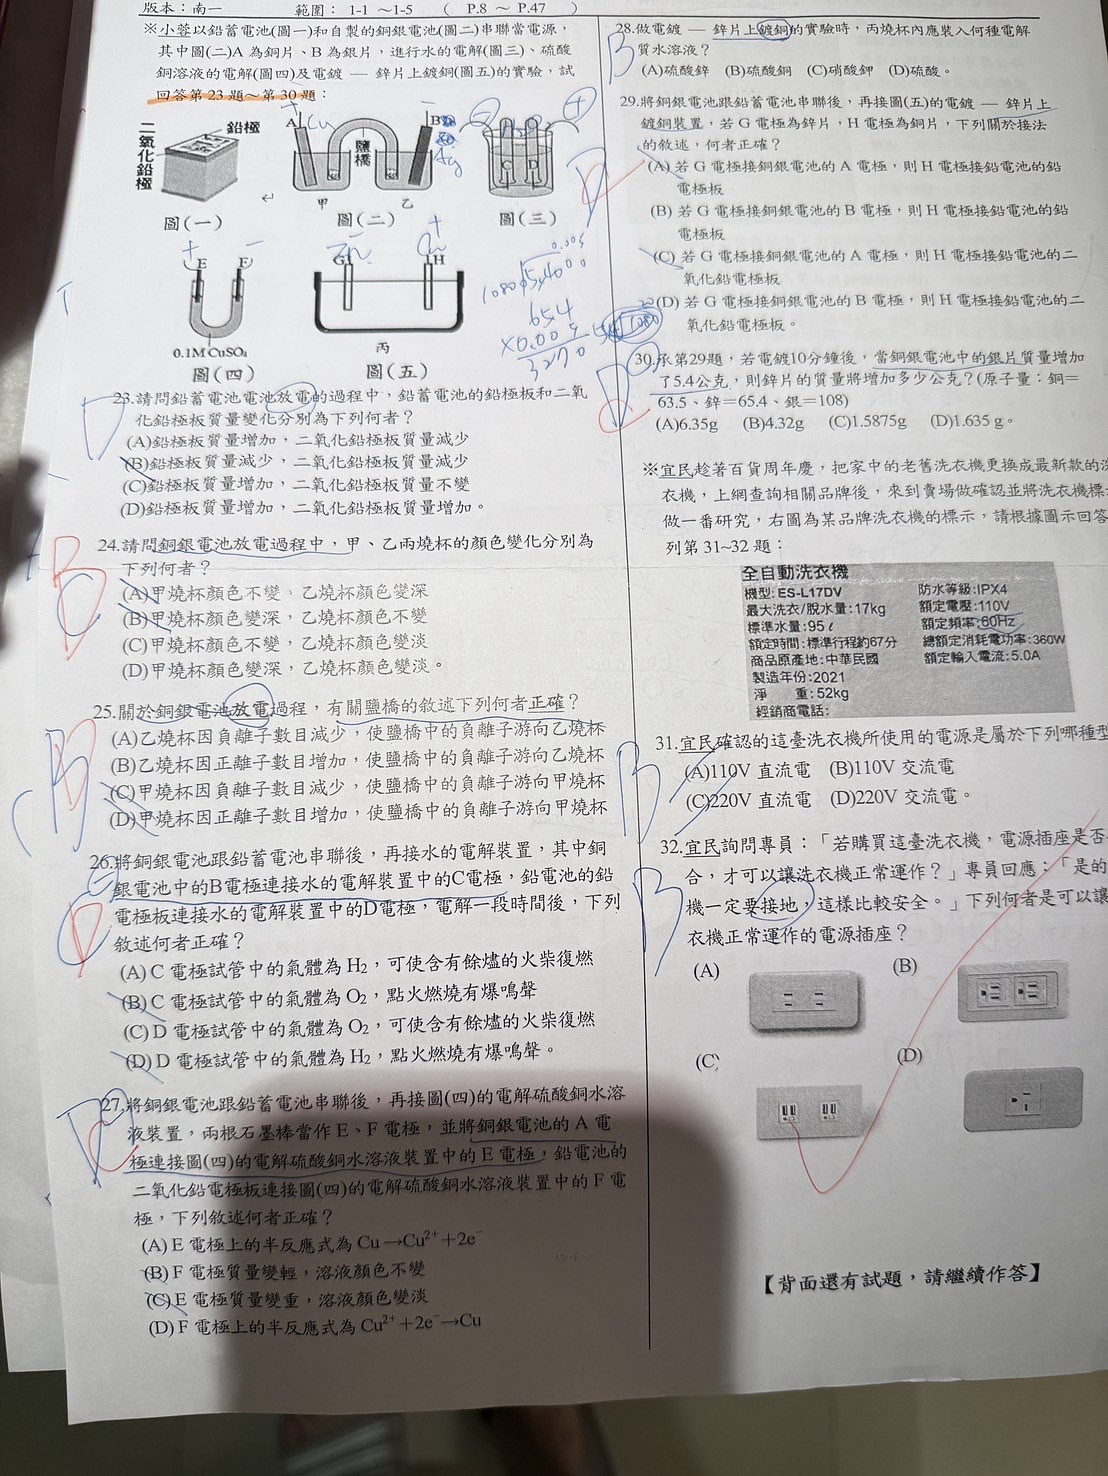 版本：南一 範圍： 1-1 ～1-5 （ P.8 ～ P.47 ）
※小蓉以鉛蓄電池(圖一)和自製的銅銀電池(圖二)串聯當電源，
其中圖(二)A 為銅片、B 為銀片，進行水的電解(圖三)、硫酸
銅溶液的電解(圖四)及電鍍 — 鋅片上鍍銅(圖五)的實驗，試
回答第 23 題～第 30 題：
二氧化鉛極
鉛極
圖(一)
A
Cu
鹽橋
B
Ag
甲
乙
圖(二)
C D
圖(三)
+
−
E F
0.1M CuSO₄
圖(四)
Zn
Cu
G H
丙
圖(五)
23.請問鉛蓄電池電池放電的過程中，鉛蓄電池的鉛極板和二氧
化鉛極板質量變化分別為下列何者？
(A)鉛極板質量增加，二氧化鉛極板質量減少
(B)鉛極板質量減少，二氧化鉛極板質量減少
(C)鉛極板質量增加，二氧化鉛極板質量不變
(D)鉛極板質量增加，二氧化鉛極板質量增加。
D
24.請問銅銀電池放電過程中，甲、乙兩燒杯的顏色變化分別為
下列何者？
(A)甲燒杯顏色不變，乙燒杯顏色變深
(B)甲燒杯顏色變深，乙燒杯顏色不變
(C)甲燒杯顏色不變，乙燒杯顏色變淡
(D)甲燒杯顏色變深，乙燒杯顏色變淡。
B
25.關於銅銀電池放電過程，有關鹽橋的敘述下列何者正確？
(A)乙燒杯因負離子數目減少，使鹽橋中的負離子游向乙燒杯
(B)乙燒杯因正離子數目增加，使鹽橋中的負離子游向乙燒杯
(C)甲燒杯因負離子數目減少，使鹽橋中的負離子游向甲燒杯
(D)甲燒杯因正離子數目增加，使鹽橋中的負離子游向甲燒杯
B
26.將銅銀電池跟鉛蓄電池串聯後，再接水的電解裝置，其中銅
銀電池中的B電極連接水的電解裝置中的C電極，鉛電池的鉛
電極板連接水的電解裝置中的D電極，電解一段時間後，下列
敘述何者正確？
(A) C 電極試管中的氣體為 H₂，可使含有餘燼的火柴復燃
(B) C 電極試管中的氣體為 O₂，點火燃燒有爆鳴聲
(C) D 電極試管中的氣體為 O₂，可使含有餘燼的火柴復燃
(D) D 電極試管中的氣體為 H₂，點火燃燒有爆鳴聲。
D
27.將銅銀電池跟鉛蓄電池串聯後，再接圖(四)的電解硫酸銅水溶
液裝置，兩根石墨棒當作 E、F 電極，並將銅銀電池的 A 電
極連接圖(四)的電解硫酸銅水溶液裝置中的 E 電極，鉛電池的
二氧化鉛電極板連接圖(四)的電解硫酸銅水溶液裝置中的 F 電
極，下列敘述何者正確？
(A) E 電極上的半反應式為 Cu →Cu²⁺+2e⁻
(B) F 電極質量變輕，溶液顏色不變
(C) E 電極質量變重，溶液顏色變淡
(D) F 電極上的半反應式為 Cu²⁺+2e⁻→Cu
28.做電鍍 — 鋅片上鍍銅的實驗時，丙燒杯內應裝入何種電解
質水溶液？
(A)硫酸鋅 (B)硫酸銅 (C)硝酸鉀 (D)硫酸。
B
29.將銅銀電池跟鉛蓄電池串聯後，再接圖(五)的電鍍 — 鋅片上
鍍銅裝置，若 G 電極為鋅片，H 電極為銅片，下列關於接法
的敘述，何者正確？
(A) 若 G 電極接銅銀電池的 A 電極，則 H 電極接鉛電池的鉛
電極板
(B) 若 G 電極接銅銀電池的 B 電極，則 H 電極接鉛電池的鉛
電極板
(C) 若 G 電極接銅銀電池的 A 電極，則 H 電極接鉛電池的二
氧化鉛電極板
(D) 若 G 電極接銅銀電池的 B 電極，則 H 電極接鉛電池的二
氧化鉛電極板。
D
654
×0.005
3270
30.承第29題，若電鍍10分鐘後，當銅銀電池中的銀片質量增加
了5.4公克，則鋅片的質量將增加多少公克？(原子量：銅＝
63.5、鋅＝65.4、銀＝108)
(A)6.35g (B)4.32g (C)1.5875g (D)1.635 g。
※宜民趁著百貨周年慶，把家中的老舊洗衣機更換成最新款的
衣機，上網查詢相關品牌後，來到賣場做確認並將洗衣機標
做一番研究，右圖為某品牌洗衣機的標示，請根據圖示回答
列第 31~32 題：
全自動洗衣機
機型: ES-L17DV 防水等級:IPX4
最大洗衣/脫水量:17kg 額定電壓:110V
標準水量:95ℓ 額定頻率:60Hz
額定時間:標準行程約67分 總額定消耗電功率:360W
商品原產地:中華民國 額定輸入電流:5.0A
製造年份:2021
淨 重:52kg
經銷商電話:
31.宜民確認的這臺洗衣機所使用的電源是屬於下列哪種型
(A)110V 直流電 (B)110V 交流電
(C)220V 直流電 (D)220V 交流電。
B
32.宜民詢問專員：「若購買這臺洗衣機，電源插座是否
合，才可以讓洗衣機正常運作？」專員回應：「是的
機一定要接地，這樣比較安全。」下列何者是可以讓
衣機正常運作的電源插座？
B
(A) (B)
(C) (D)
【背面還有試題，請繼續作答】